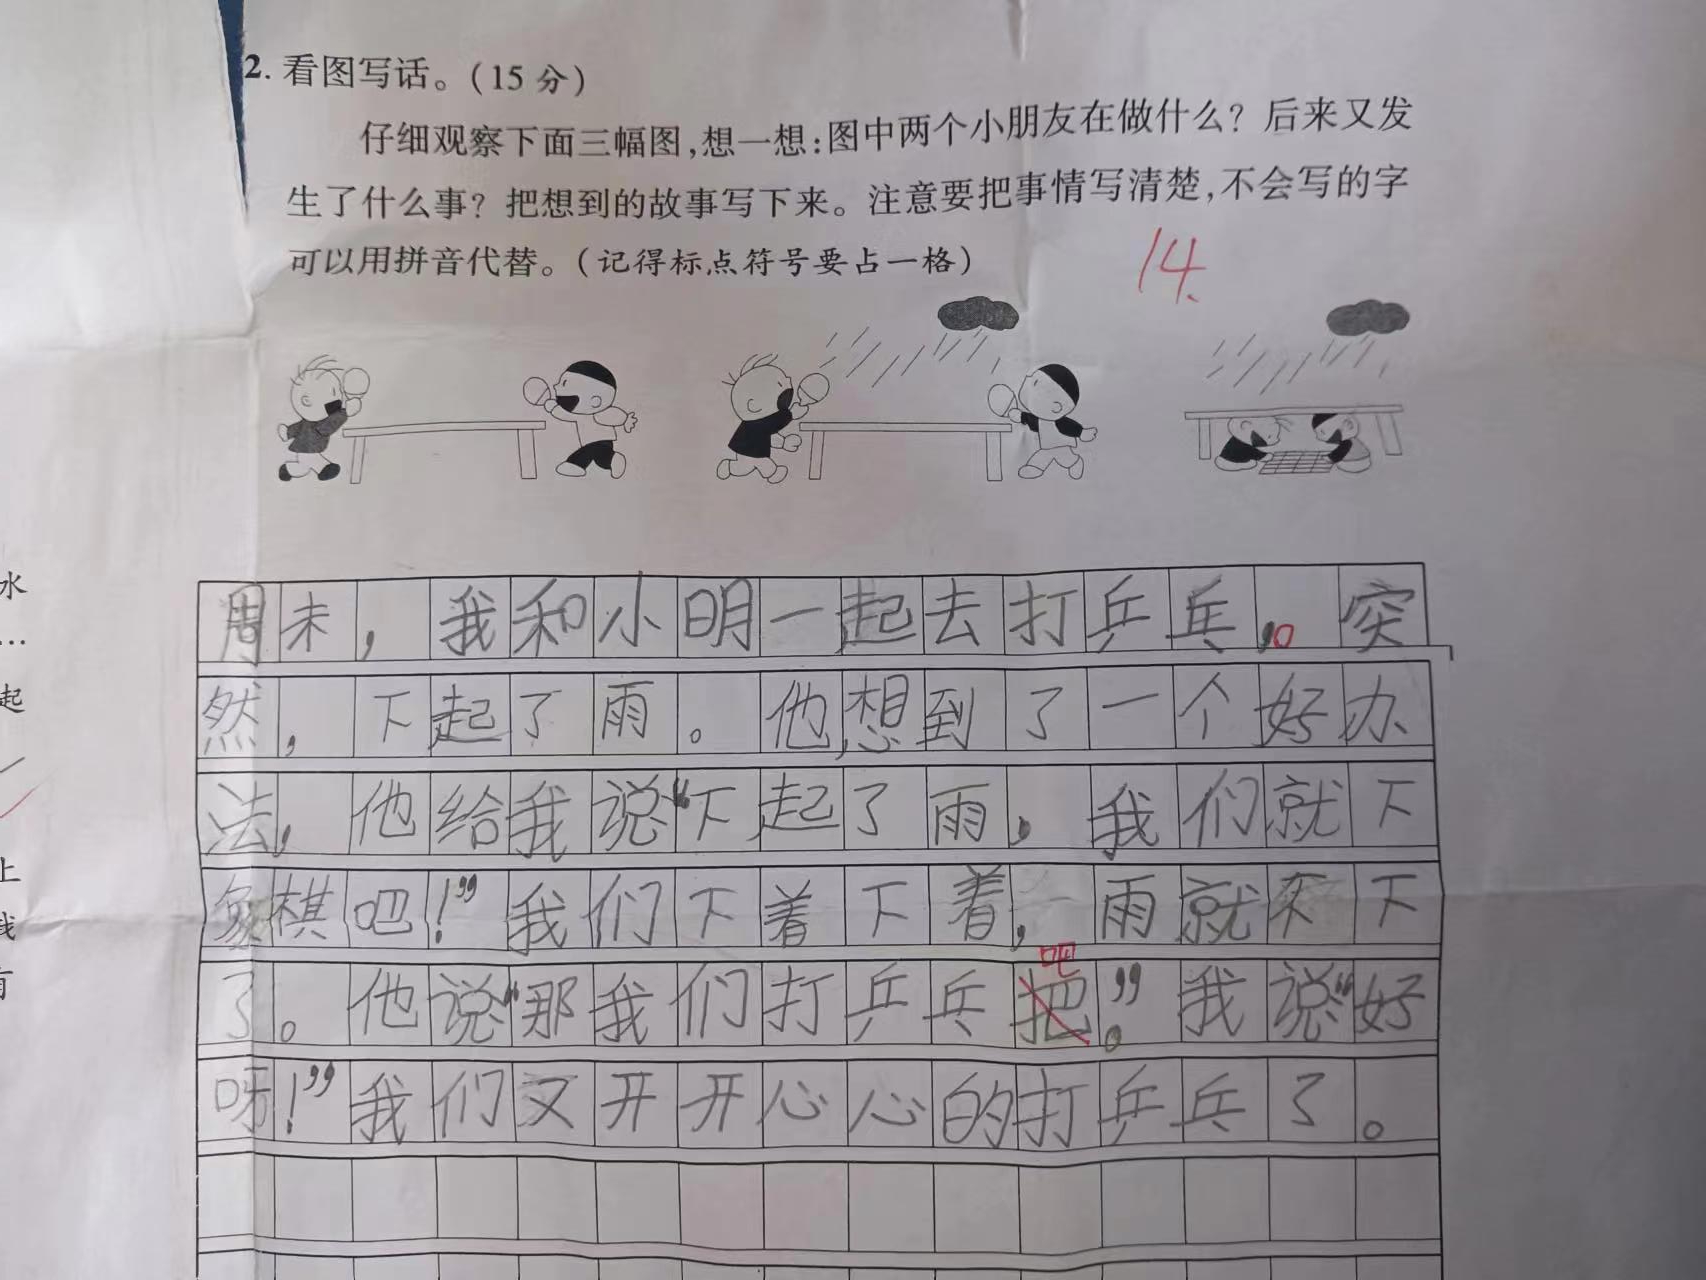 2. 看图写话。(15 分)
仔细观察下面三幅图,想一想:图中两个小朋友在做什么? 后来又发
生了什么事? 把想到的故事写下来。注意要把事情写清楚,不会写的字
可以用拼音代替。(记得标点符号要占一格)
14.
周末,我和小明一起去打乒乓,。突
然,下起了雨。他想到了一个好办
法,他给我说“下起了雨,我们就下
象棋吧!”我们下着下着,雨就不下
吧
了。他说“那我们打乒乓把。”我说“好
呀!”我们又开开心心的打乒乓了。
水
…
起
上